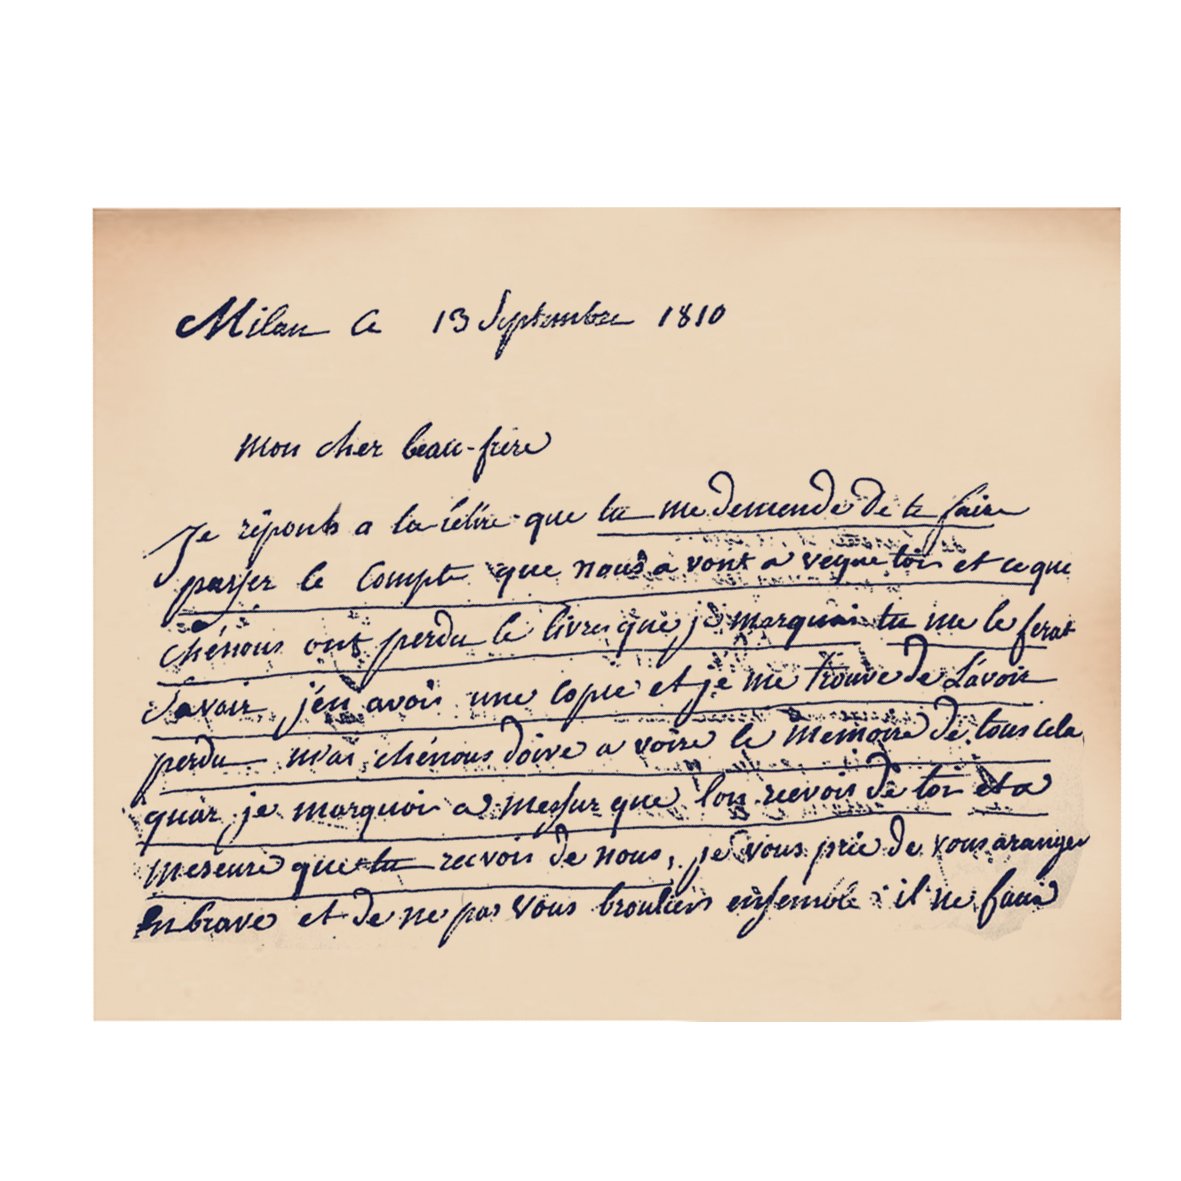 Milan le 13 Septembre 1810
mon cher beau-frere
Je réponts a ta letire que tu me demende de te faire
passer le Compte que nous a vont a veque toi et ce que
chénous ont perdu le livres que je marquai tu me le ferat
Savoir j'én avoi une copie et je me trouve de L'avoir
perdu mai chénous doive a voire le memoire de tous cela
quar je marquoi a messur que lon recvoi de toi et a
meseure que tu recvoi de nous, je vous prie de vous aranger
en brave et de ne pas vous brouliers ensemble il ne faut